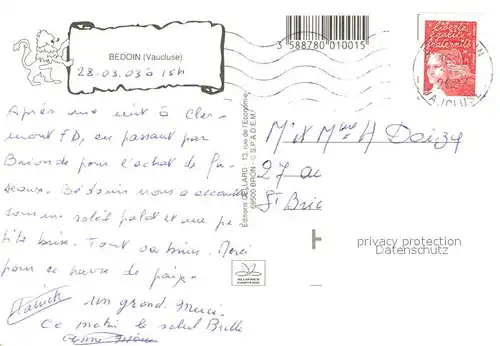 BEDOIN (Vaucluse)
28.03.03 à 15h
3 588780 010015
liberté
égalité
fraternité
VAUCLUSE
Après une nuit à Cler-
mont FD, en passant par
Brionde pour l'achat de fu-
seaux. Bédouin nous a accueilli
sous un soleil palot et une pe-
tite brise. Tout va bien. Merci
pour ce havre de paix.
Patrick
Un grand Merci.
Ce matin le soleil Brille
Editions CELLARD - 13, rue de l'Economie
69500 BRON - © S.P.A.D.E.M.
Mr et Mme H Doizy
27 ac
St Bric
privacy protection
Datenschutz
ALLIANCE
CARTERIE